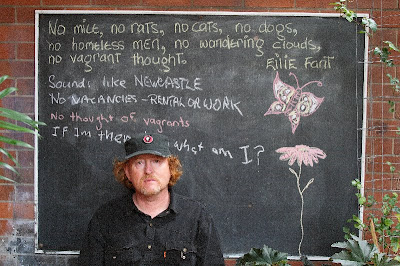 No mice, no rats, no cats, no dogs,
no homeless men, no wandering clouds,
no vagrant thought.
Eilie Farit
Sounds like NEWCASTLE
No VACANCIES - RENTAL OR WORK
No thought of vagrants
IF Im then what am I?